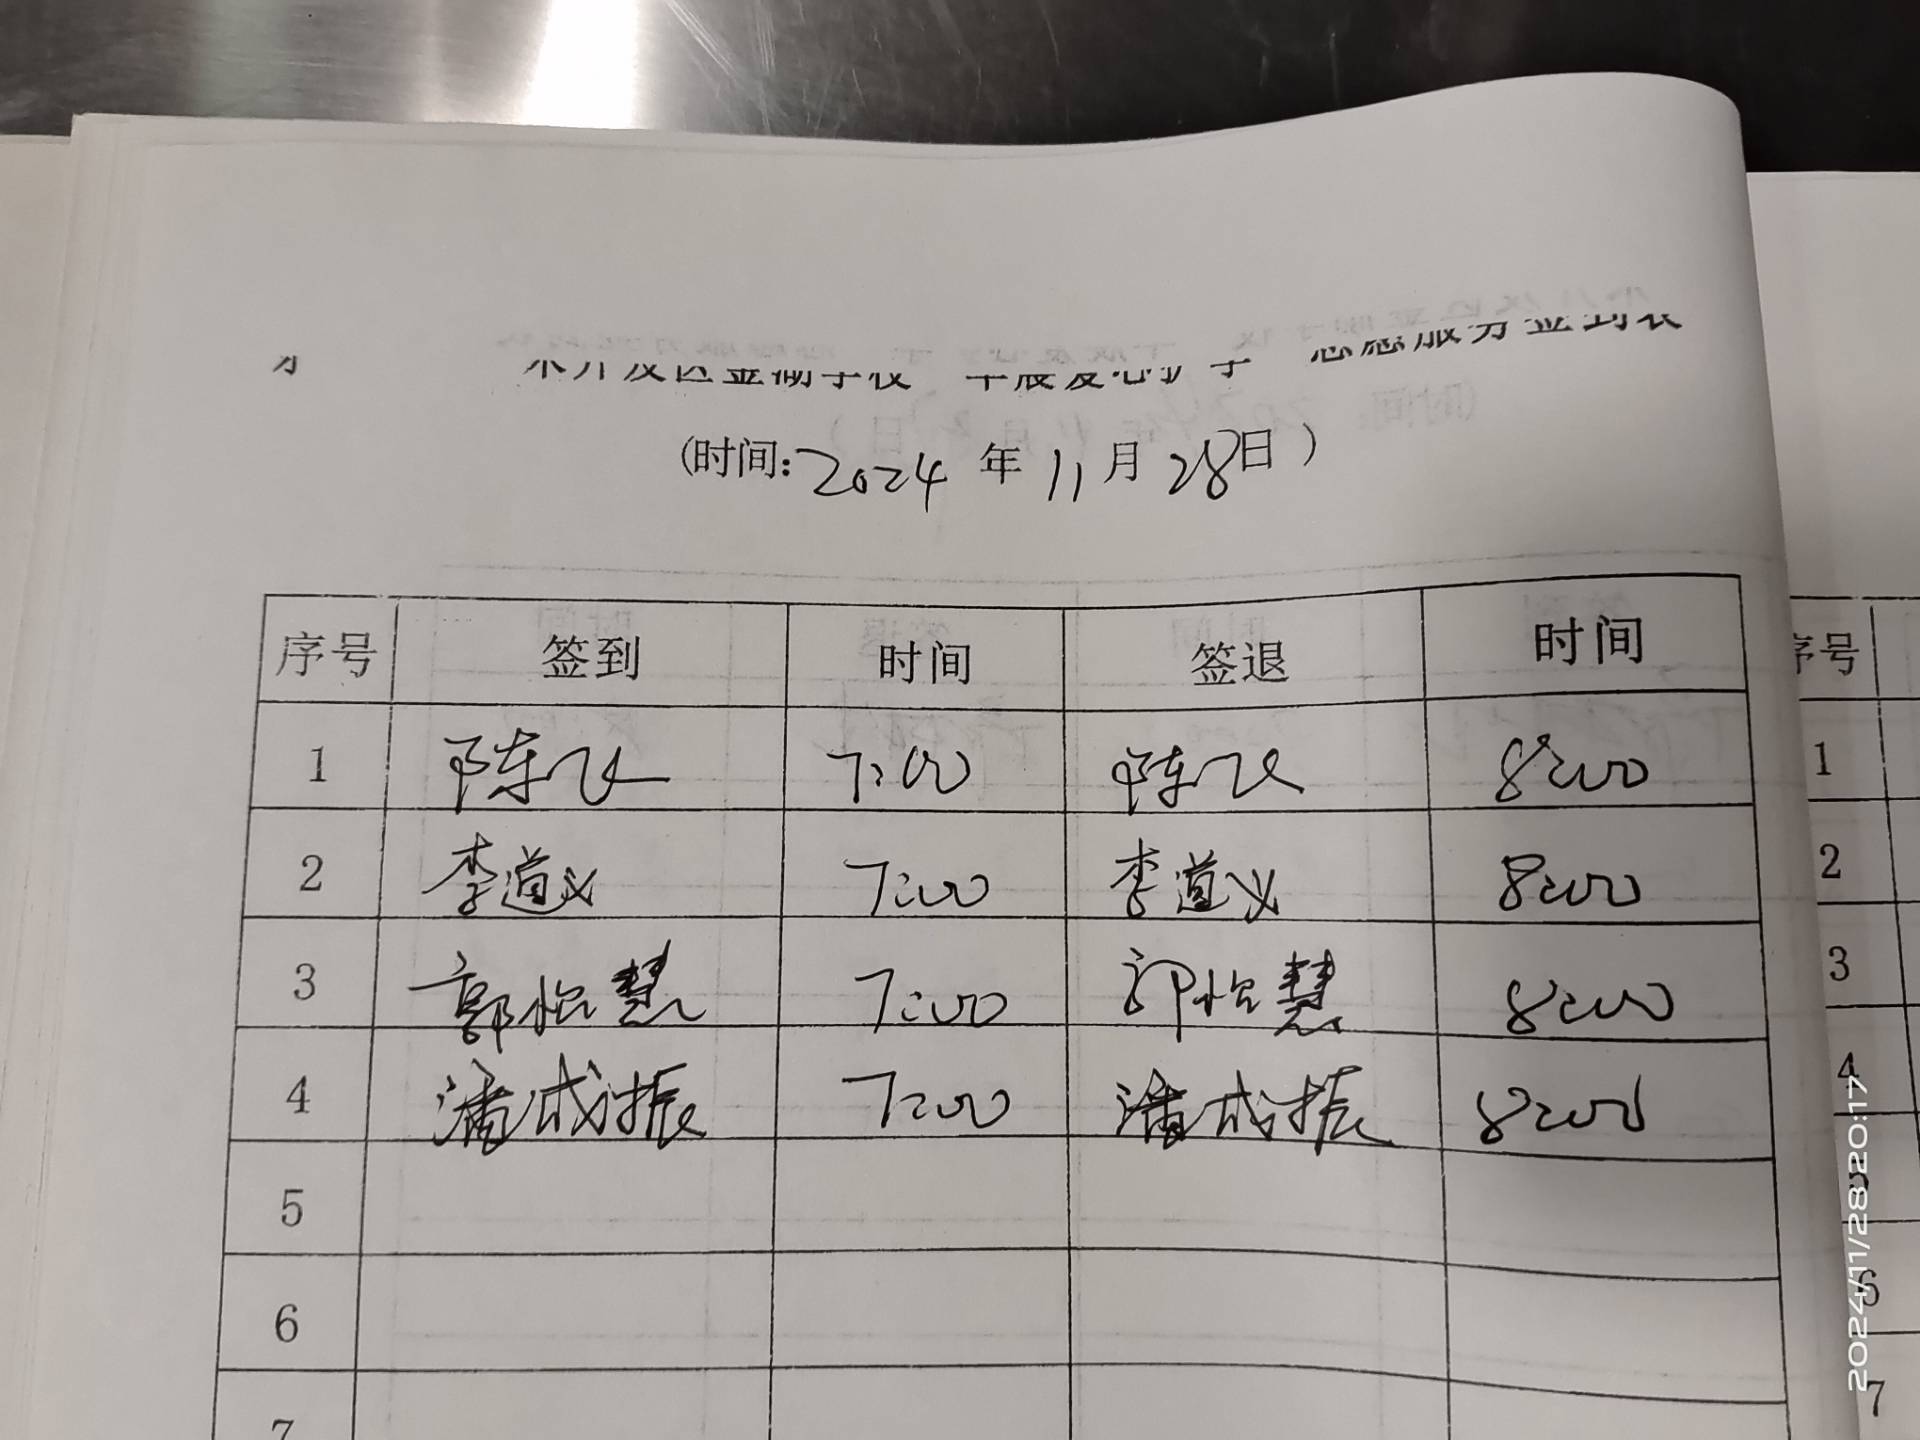 (时间:2024 年 11 月 28日 )
序号 签到 时间 签退 时间
1 陈飞 7:00 陈飞 8:00
2 李道义 7:00 李道义 8:00
3 郭怡慧 7:00 郭怡慧 8:00
4 潘成振 7:00 潘成振 8:00
5
6
7
序号
1
2
3
4
6
7
2024/11/28 20:17